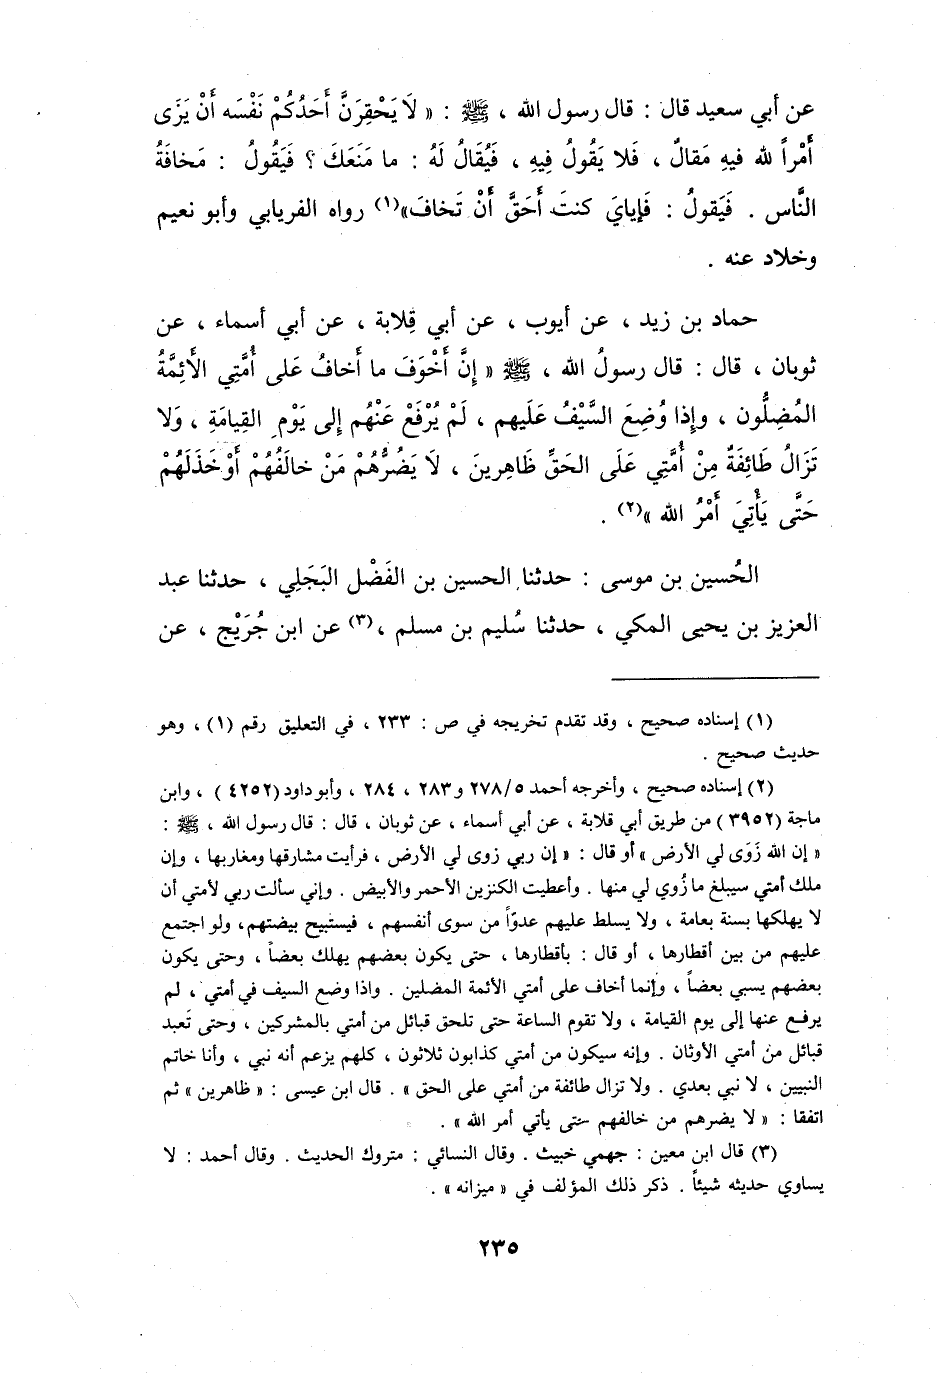 عن أبي سعيد قال : قال رسول الله ، ﷺ : « لَا يَحْقِرَنَّ أَحَدُكُمْ نَفْسَه أَنْ يَرَى
أَمْراً لله فيهِ مَقالٌ ، فَلا يَقُولُ فِيهِ ، فَيُقَالُ لَهُ : ما مَنَعَكَ ؟ فَيَقُولُ : مَخافَةُ
النَّاس . فَيَقولُ : فَإيايَ كنتَ أَحَقَّ أَنْ تَخافَ»(١) رواه الفريابي وأبو نعيم
وخلاد عنه .
حماد بن زيد ، عن أيوب ، عن أبي قِلابة ، عن أبي أسماء ، عن
ثوبان ، قال : قال رسولُ الله ، ﷺ « إِنَّ أَخْوَفَ ما أَخافُ عَلى أُمَّتِي الأَئِمَّةُ
المُضِلُّون ، وإِذا وُضِعَ السَّيْفُ عَلَيهم ، لَمْ يُرْفَعْ عَنْهُم إِلى يَوْمِ القِيامَةِ ، وَلا
تَزَالُ طَائِفَةٌ مِنْ أُمَّتِي عَلَى الحَقِّ ظَاهِرينَ ، لَا يَضُرُّهُمْ مَنْ خالَفُهُمْ أَوْ خَذَلَهُمْ
حَتَّى يَأْتِيَ أَمْرُ الله »(٢) .
الحُسين بن موسى : حدثنا الحسين بن الفَضْل البَجَلي ، حدثنا عبد
العزيز بن يحيى المكي ، حدثنا سُليم بن مسلم ،(٣) عن ابن جُرَيْج ، عن
(١) إسناده صحيح ، وقد تقدم تخريجه في ص : ٢٣٣ ، في التعليق رقم (١) ، وهو
حديث صحيح .
(٢) إسناده صحيح ، وأخرجه أحمد ٢٧٨/٥ و ٢٨٣ ، ٢٨٤ ، وأبو داود (٤٢٥٢ ) ، وابن
ماجة (٣٩٥٢ ) من طريق أبي قلابة ، عن أبي أسماء ، عن ثوبان ، قال : قال رسول الله ، ﷺ :
« إن الله زَوَى لي الأرض » أو قال : « إن ربي زوى لي الأرض ، فرأيت مشارقها ومغاربها ، وإن
ملك أمتي سيبلغ ما زُوي لي منها . وأعطيت الكنزين الأحمر والأبيض . وإني سألت ربي لأمتي أن
لا يهلكها بسنة بعامة ، ولا يسلط عليهم عدوّاً من سوى أنفسهم ، فيستبيح بيضتهم، ولو اجتمع
عليهم من بين أقطارها ، أو قال : بأقطارها ، حتى يكون بعضهم يهلك بعضاً ، وحتى يكون
بعضهم يسبي بعضاً ، وإنما أخاف على أمتي الأئمة المضلين . واذا وضع السيف في أمتي ، لم
يرفع عنها إلى يوم القيامة ، ولا تقوم الساعة حتى تلحق قبائل من أمتي بالمشركين ، وحتى تَعبد
قبائل من أمتي الأوثان . وإنه سيكون من أمتي كذابون ثلاثون ، كلهم يزعم أنه نبي ، وأنا خاتم
النبيين ، لا نبي بعدي . ولا تزال طائفة من أمتي على الحق » . قال ابن عيسى : « ظاهرين » ثم
اتفقا : « لا يضرهم من خالفهم حتى يأتي أمر الله » .
(٣) قال ابن معين : جهمي خبيث . وقال النسائي : متروك الحديث . وقال أحمد : لا
يساوي حديثه شيئاً . ذكر ذلك المؤلف في « ميزانه » .
٢٣٥